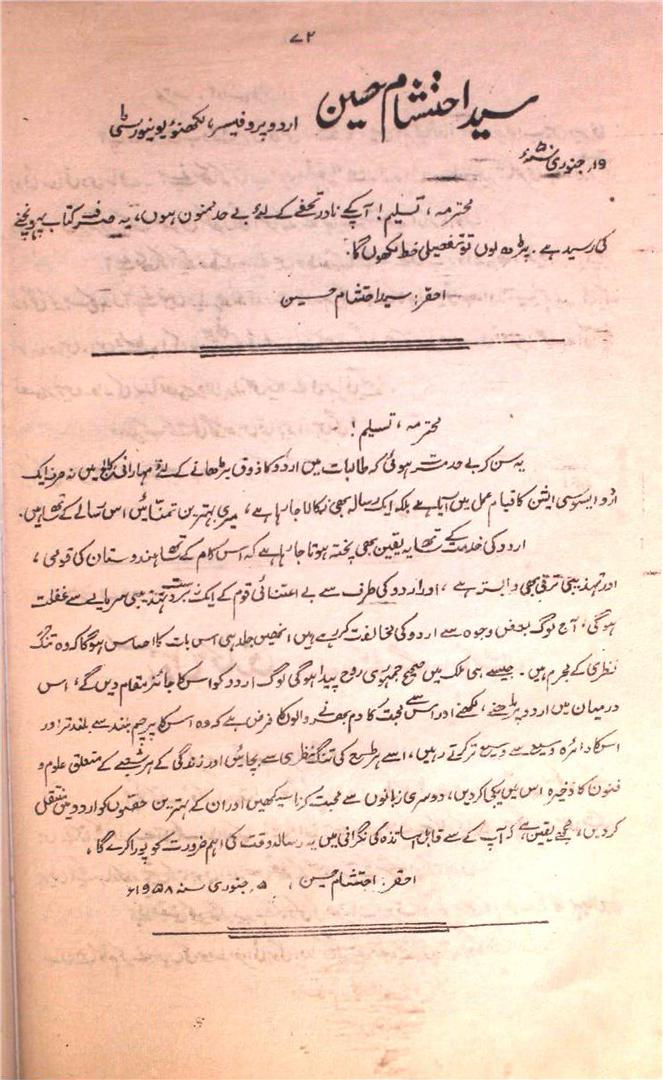 ۷۲
سید احتشام حسین اردو پروفیسر، لکھنؤ یونیورسٹی
۱۹؍ جنوری ۵۰ سنہ ء
محترمہ، تسلیم! آپ کے نادر تحفے کے لئے بے حد ممنون ہوں، یہ صرف کتاب پہونچنے
کی رسید ہے۔ پڑھ لوں تو تفصیلی خط لکھوں گا۔
احقر: سید احتشام حسین
محترمہ، تسلیم!
یہ سن کر بے حد مسرت ہوئی کہ طالبات میں اردو کا ذوق بڑھانے کے لئے مہارانی کالج میں نہ صرف ایک
اردو ایسوسی ایشن کا قیام عمل میں آیا ہے بلکہ ایک رسالہ بھی نکالا جا رہا ہے، میری بہترین تمنائیں اس رسالے کے ساتھ ہیں۔
اردو کی خدمت کے ساتھ یہ یقین بھی پختہ ہوتا جا رہا ہے کہ اس کام کے ساتھ ہندوستان کی قومی،
اور تہذیبی ترقی بھی وابستہ ہے، اور اردو کی طرف سے بے اعتنائی قوم کے ایک زبردست تہذیبی سرمایے سے غفلت
ہوگی، آج لوگ بعض وجوہ سے اردو کی مخالفت کر رہے ہیں انھیں جلد ہی اس بات کا احساس ہوگا کہ وہ تنگ
نظری کے مجرم ہیں۔ جیسے ہی ملک میں صحیح جمہوری روح پیدا ہوگی لوگ اردو کو اس کا جائز مقام دیں گے، اس
درمیان میں اردو پڑھنے، لکھنے اور اس سے محبت کا دم بھرنے والوں کا فرض ہے کہ وہ اس کا پرچم بلند سے بلند تر اور
اس کا دائرہ وسیع سے وسیع تر کرتے رہیں، اسے ہر طرح کی تنگ نظری سے بچائیں اور زندگی کے ہر شعبے کے متعلق علوم و
فنون کا ذخیرہ اس میں یکجا کر دیں، دوسری زبانوں سے محبت کرنا سیکھیں اور ان کے بہترین حصوں کو اردو میں منتقل
کر دیں، مجھے یقین ہے کہ آپ کے سے قابل اساتذہ کی نگرانی میں یہ رسالہ وقت کی اہم ضرورت کو پورا کرے گا،
احقر: احتشام حسین، ۵؍ جنوری سنہ ۱۹۵۸ء